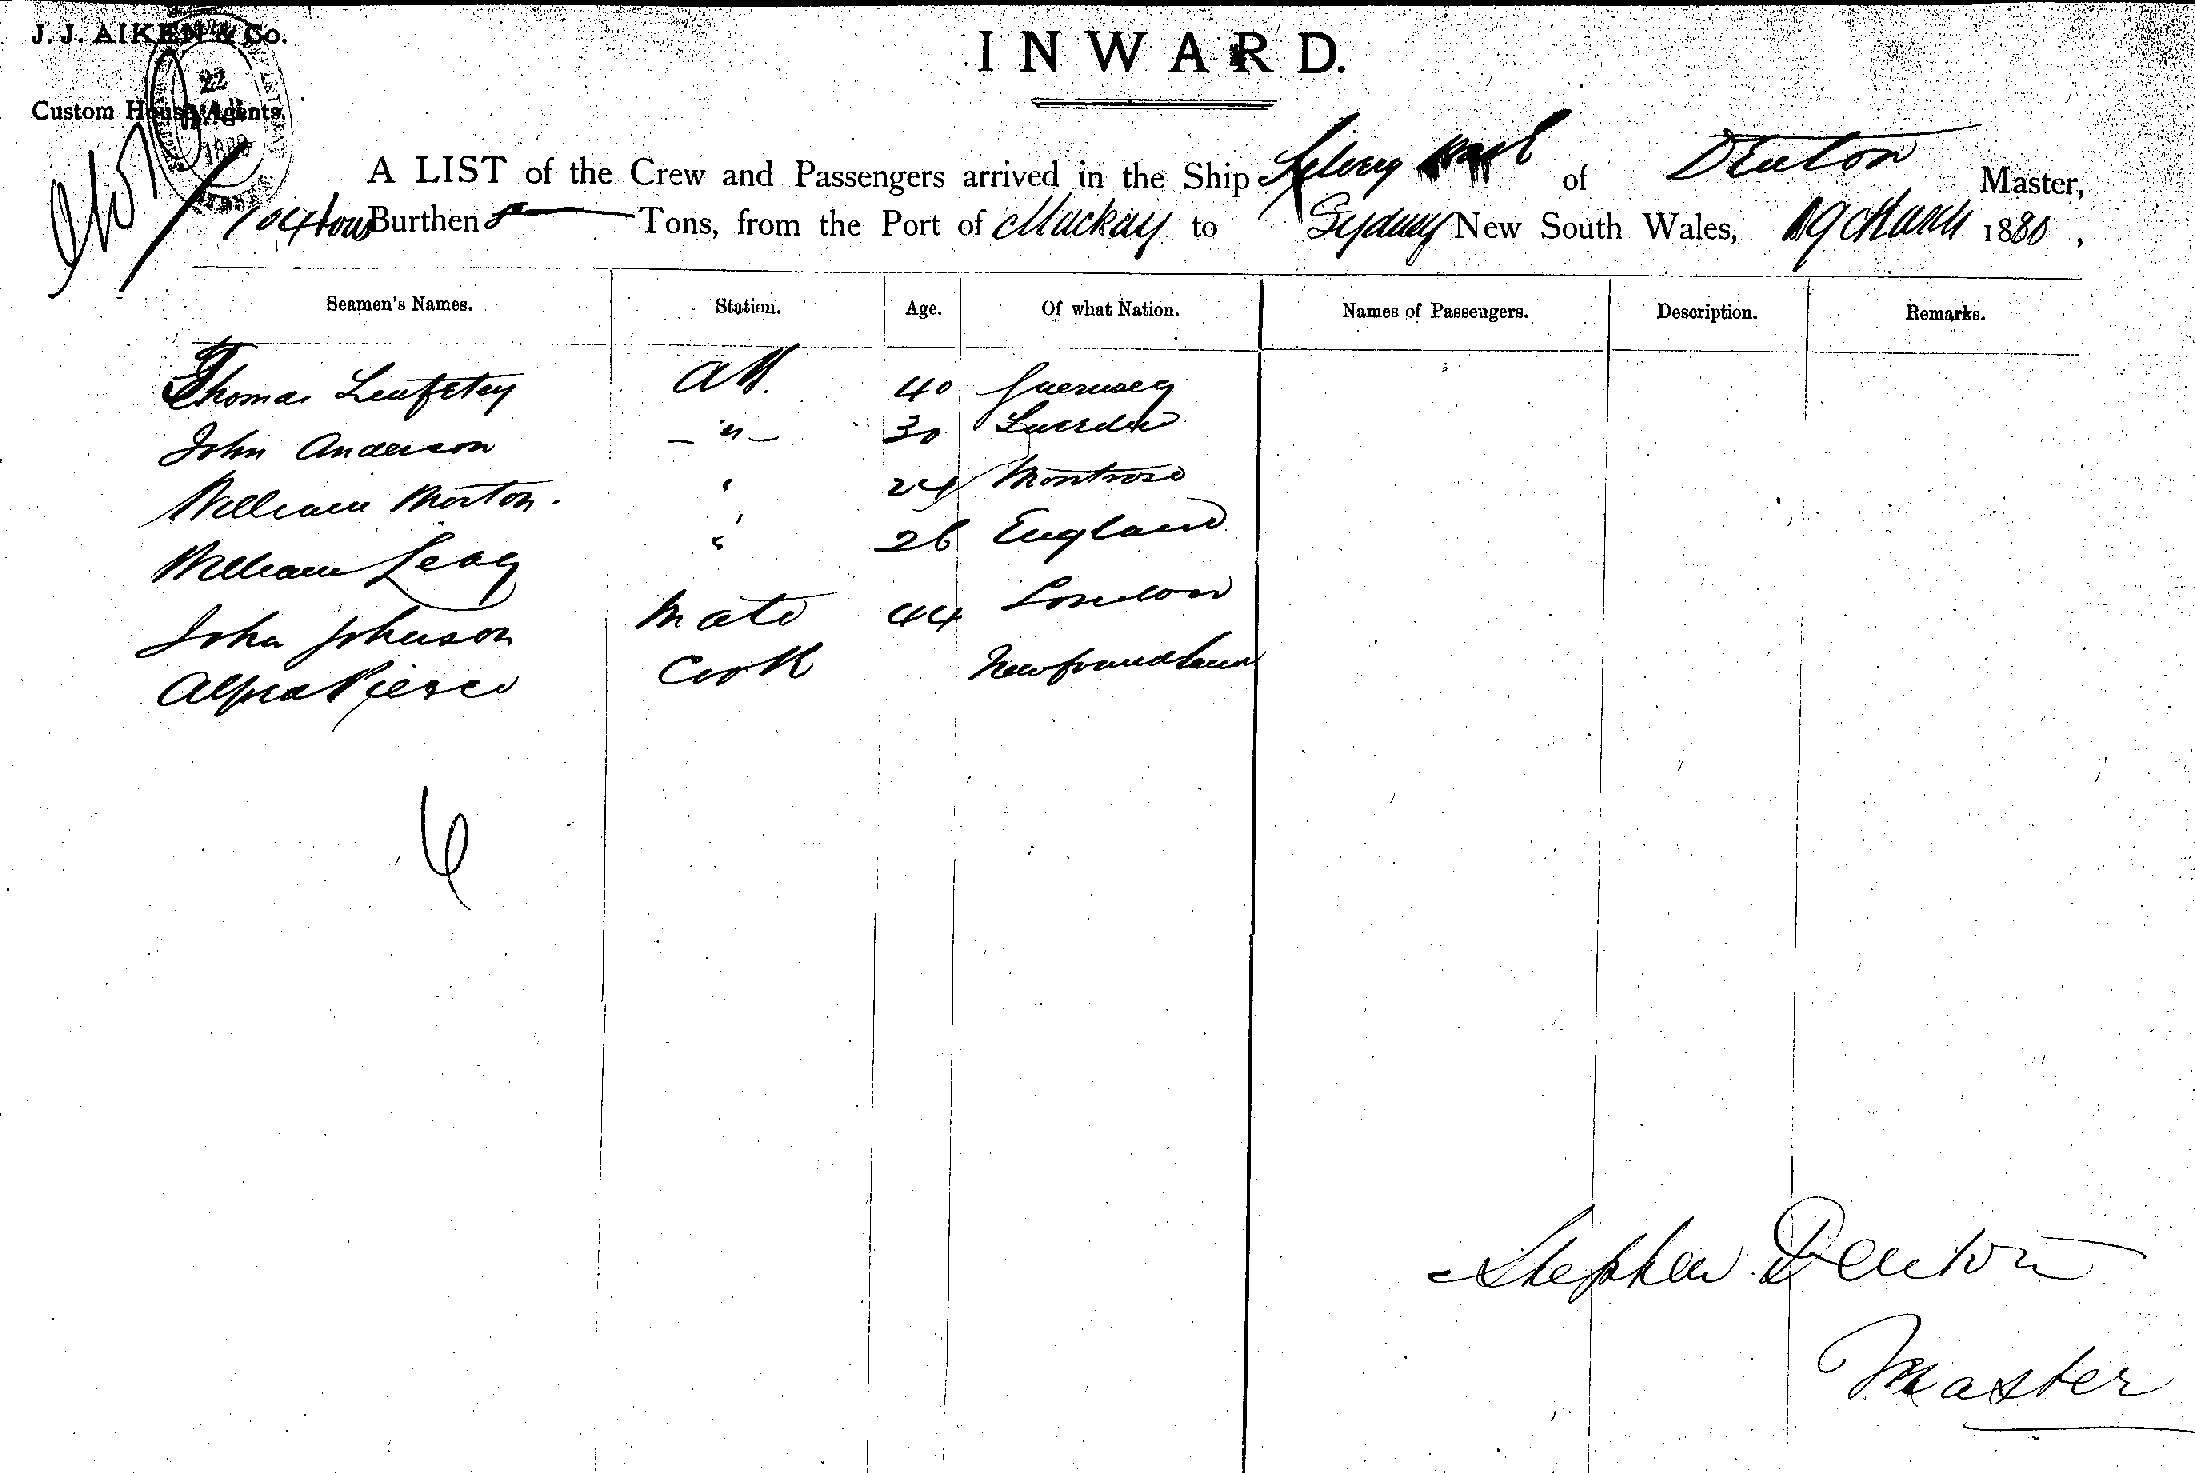 J. J. AIKEN & Co.
Custom House Agents.
22
INWARD.
A LIST of the Crew and Passengers arrived in the Ship of Denton Master,
Burthen Tons, from the Port of Mackay to Sydney New South Wales, 19 March 1880.
Seamen's Names. Station. Age. Of what Nation. Names of Passengers. Description. Remarks.
Thomas AB. 40 Guernsey
John Anderson — " — 30
William Morton. " 24 Montrose
William " 26 England
John Johnson Mate 44 London
Pierce Cook Newfoundland
6
Stephen Denton
Master